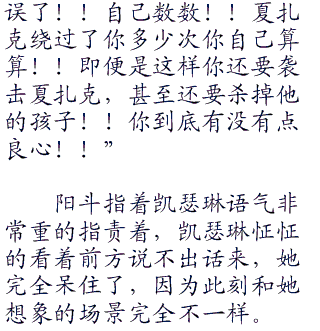 误了！！自己数数！！夏扎
克绕过了你多少次你自己算
算！！即便是这样你还要袭
击夏扎克，甚至还要杀掉他
的孩子！！你到底有没有点
良心！！”
阳斗指着凯瑟琳语气非
常重的指责着，凯瑟琳怔怔
的看着前方说不出话来，她
完全呆住了，因为此刻和她
想象的场景完全不一样。